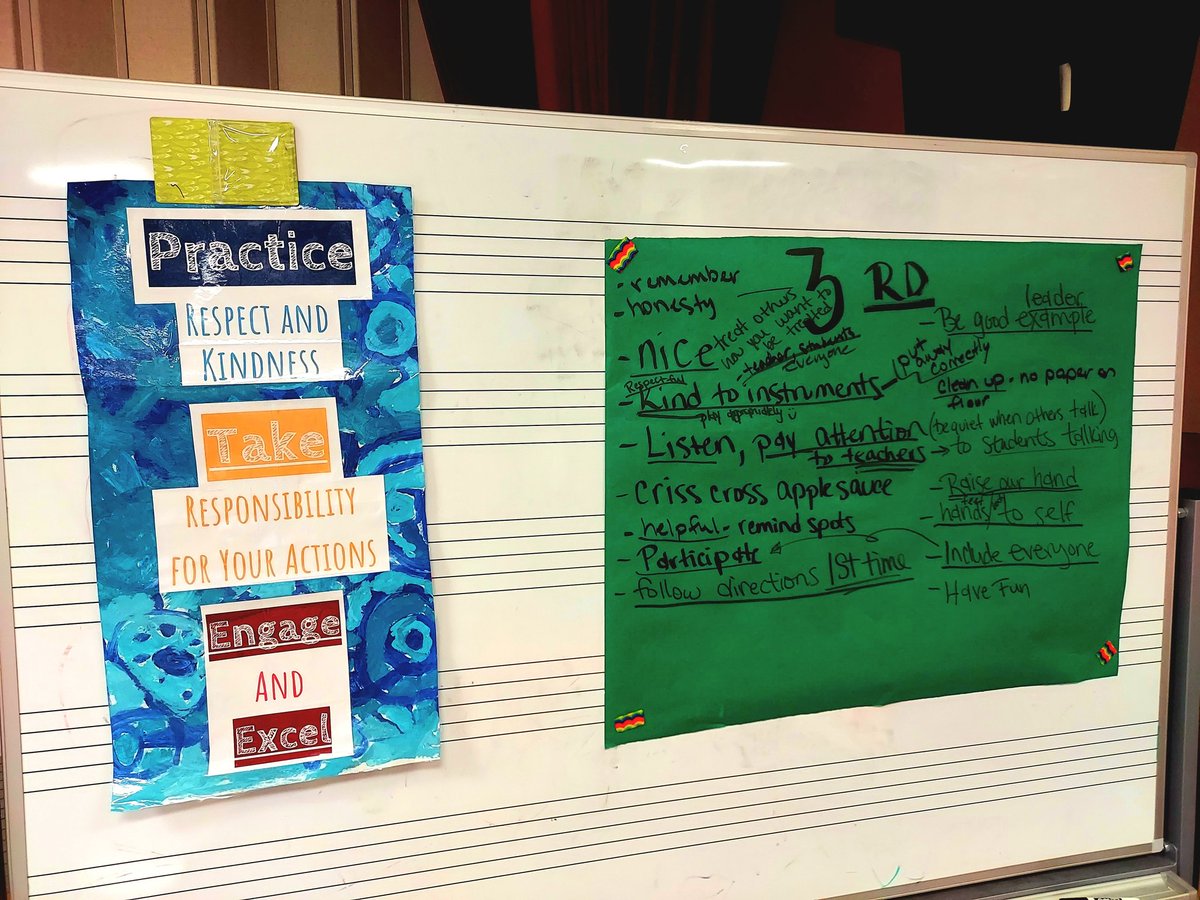 Practice
RESPECT AND
KINDNESS
Take
RESPONSIBILITY
FOR YOUR ACTIONS
Engage
AND
Excel
3 RD
- remember
- honesty
- nice
treat others
how you want to
be treated
teacher, students
everyone
Respectful
- Kind to instruments -
play appropriately
put
away
correctly
clean up - no paper on
floor
- Listen, pay attention
to teachers → to students talking
(be quiet when others talk)
- criss cross applesauce
- helpful - remind spots
- Participate
- follow directions 1st time
leader
- Be good example
- Raise our hand
feet
- hands/ to self
- Include everyone
- Have Fun